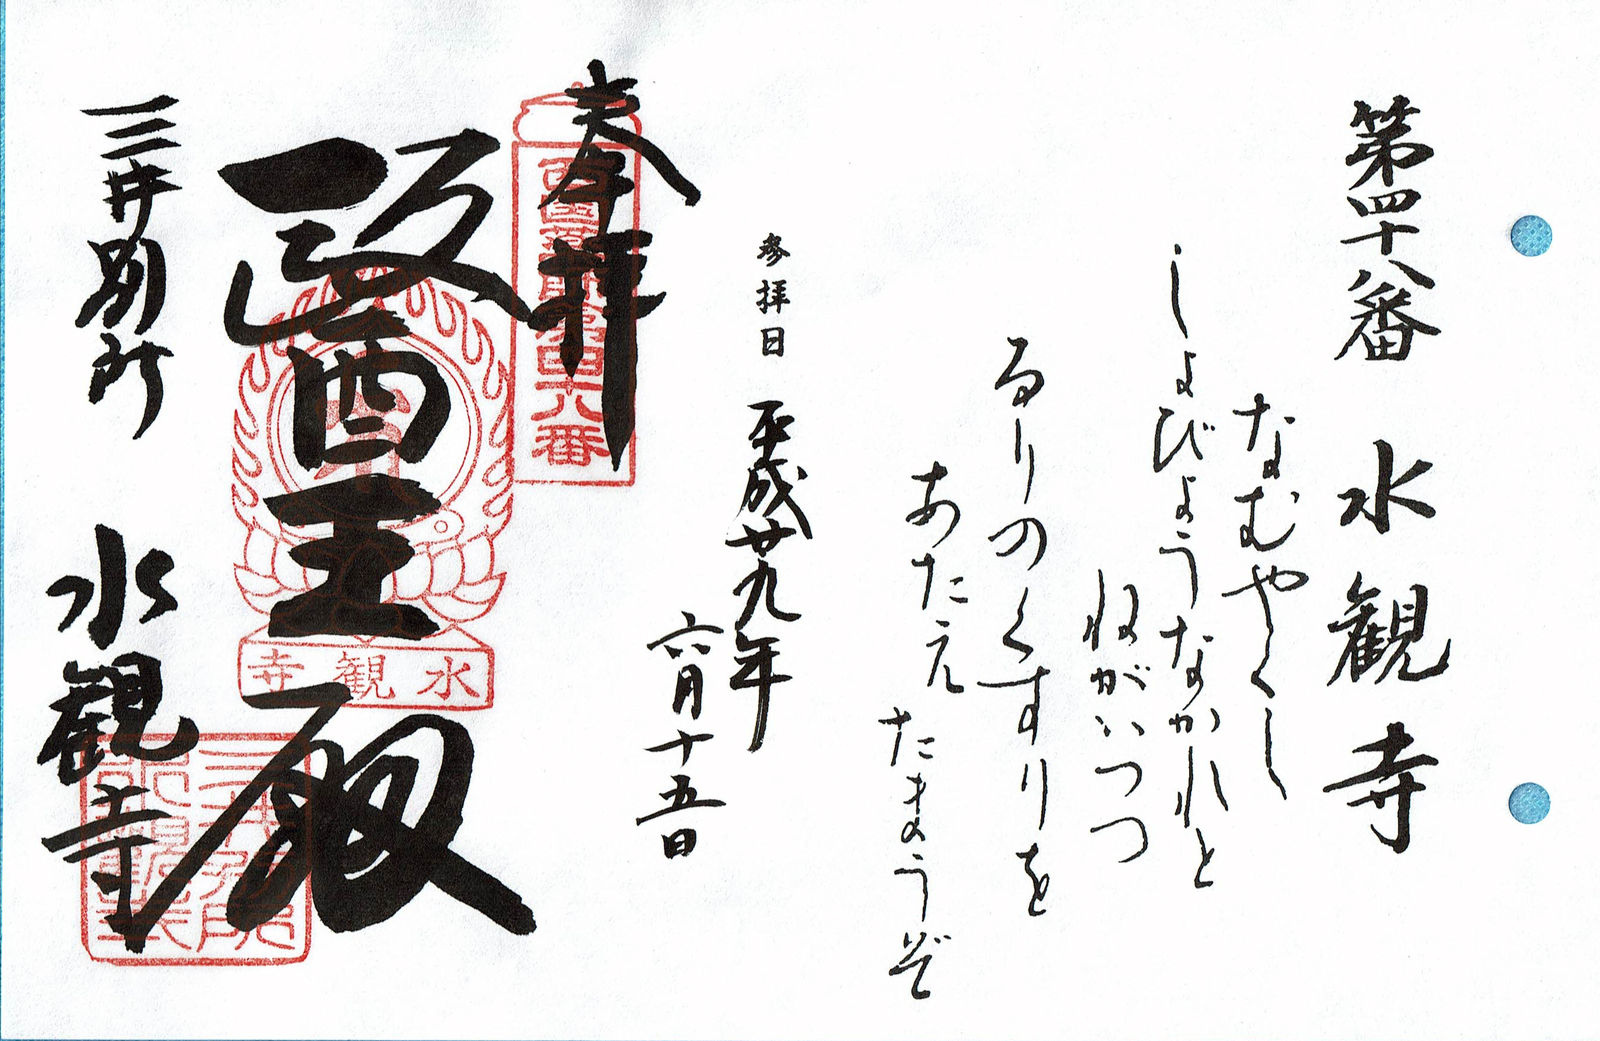 第四十八番 水観寺
なむやくし
しよびようなかれと
ねがいつつ
るりのくすりを
あたえ たまうぞ
参拝日 平成廿九年
六月十五日
奉拝
西国薬師第四十八番
醫王殿
水観寺
三井別所 水観寺